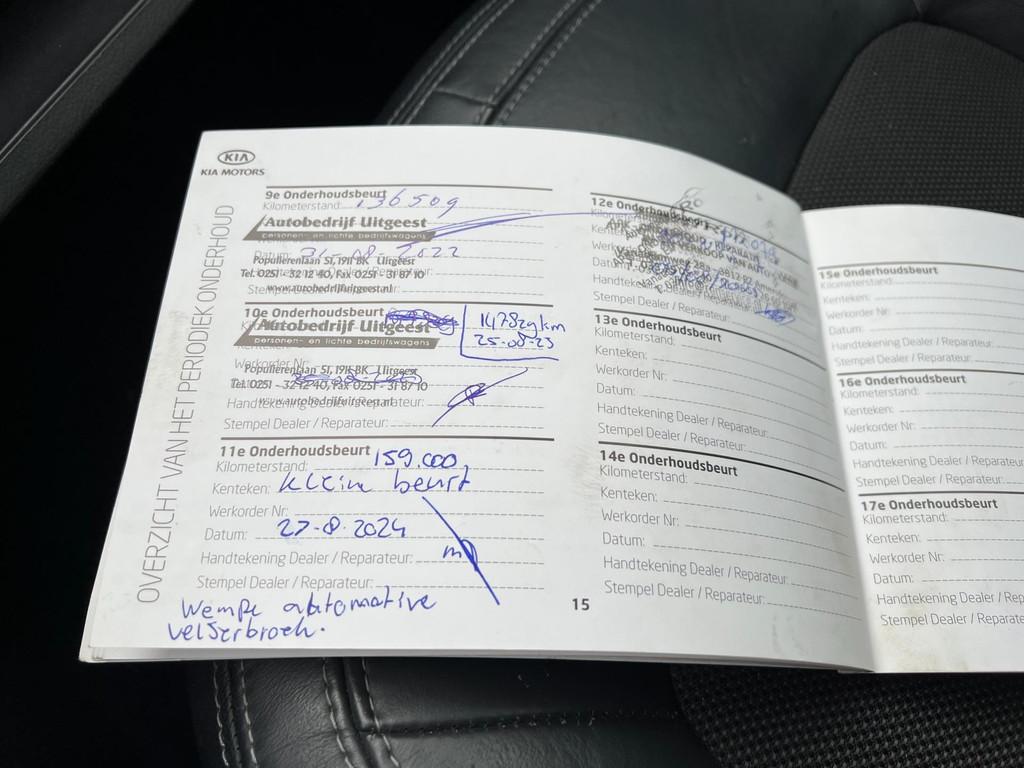 KIA
KIA MOTORS
OVERZICHT VAN HET PERIODIEK ONDERHOUD
9e Onderhoudsbeurt
Kilometerstand: 136509
Autobedrijf Uitgeest
personen- en lichte bedrijfswagens
Datum: 31-08-2022
Populierenlaan 51, 1911 BK Uitgeest
Tel. 0251 - 32 12 40, Fax 0251 - 31 87 10
www.autobedrijfuitgeest.nl
Stempel Dealer
10e Onderhoudsbeurt
147829 km
25-08-23
Autobedrijf Uitgeest
personen- en lichte bedrijfswagens
Werkorder Nr:
Populierenlaan 51, 1911 BK Uitgeest
Tel. 0251 - 32 12 40, Fax 0251 - 31 87 10
Handtekening Dealer / Reparateur:
www.autobedrijfuitgeest.nl
Stempel Dealer / Reparateur:
11e Onderhoudsbeurt
Kilometerstand: 159.000
Kenteken: kleine beurt
Werkorder Nr:
Datum: 27-8-2024
Handtekening Dealer / Reparateur:
Stempel Dealer / Reparateur:
Wempe automative
velserbroek.
12e Onderhoudsbeurt
Stempel Dealer / Reparateur:
13e Onderhoudsbeurt
Kilometerstand:
Kenteken:
Werkorder Nr:
Datum:
Handtekening Dealer / Reparateur:
Stempel Dealer / Reparateur:
14e Onderhoudsbeurt
Kilometerstand:
Kenteken:
Werkorder Nr:
Datum:
Handtekening Dealer / Reparateur:
Stempel Dealer / Reparateur:
15
15e Onderhoudsbeurt
Kilometerstand:
Kenteken:
Werkorder Nr:
Datum:
Handtekening Dealer / Reparateur:
Stempel Dealer / Reparateur:
16e Onderhoudsbeurt
Kilometerstand:
Kenteken:
Werkorder Nr:
Datum:
Handtekening Dealer / Reparateur
Stempel Dealer / Reparateur:
17e Onderhoudsbeurt
Kilometerstand:
Kenteken:
Werkorder Nr:
Datum:
Handtekening Dealer / Rep
Stempel Dealer / Reparateur: